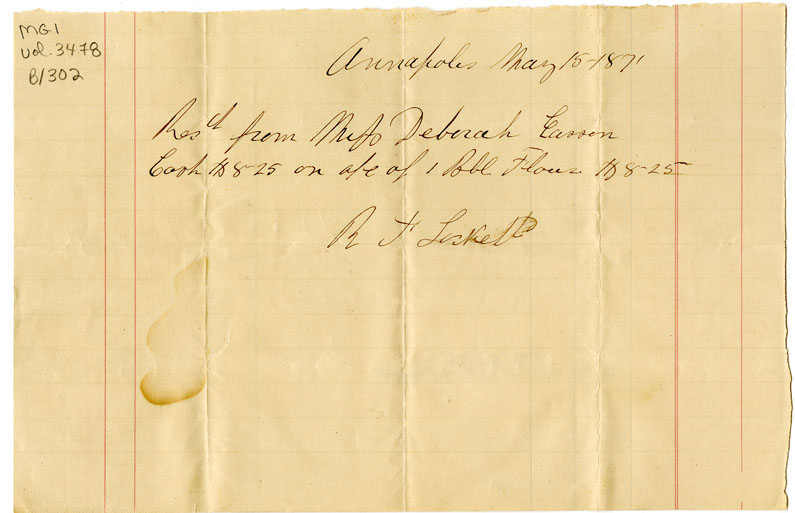 MG1
Vol. 3478
B1302
Annapolis May 15-1871
Recd from Miss Deborah Casson
Cash $8-25 on a/c of 1 Bbl Flour $8-25
R F Lockett